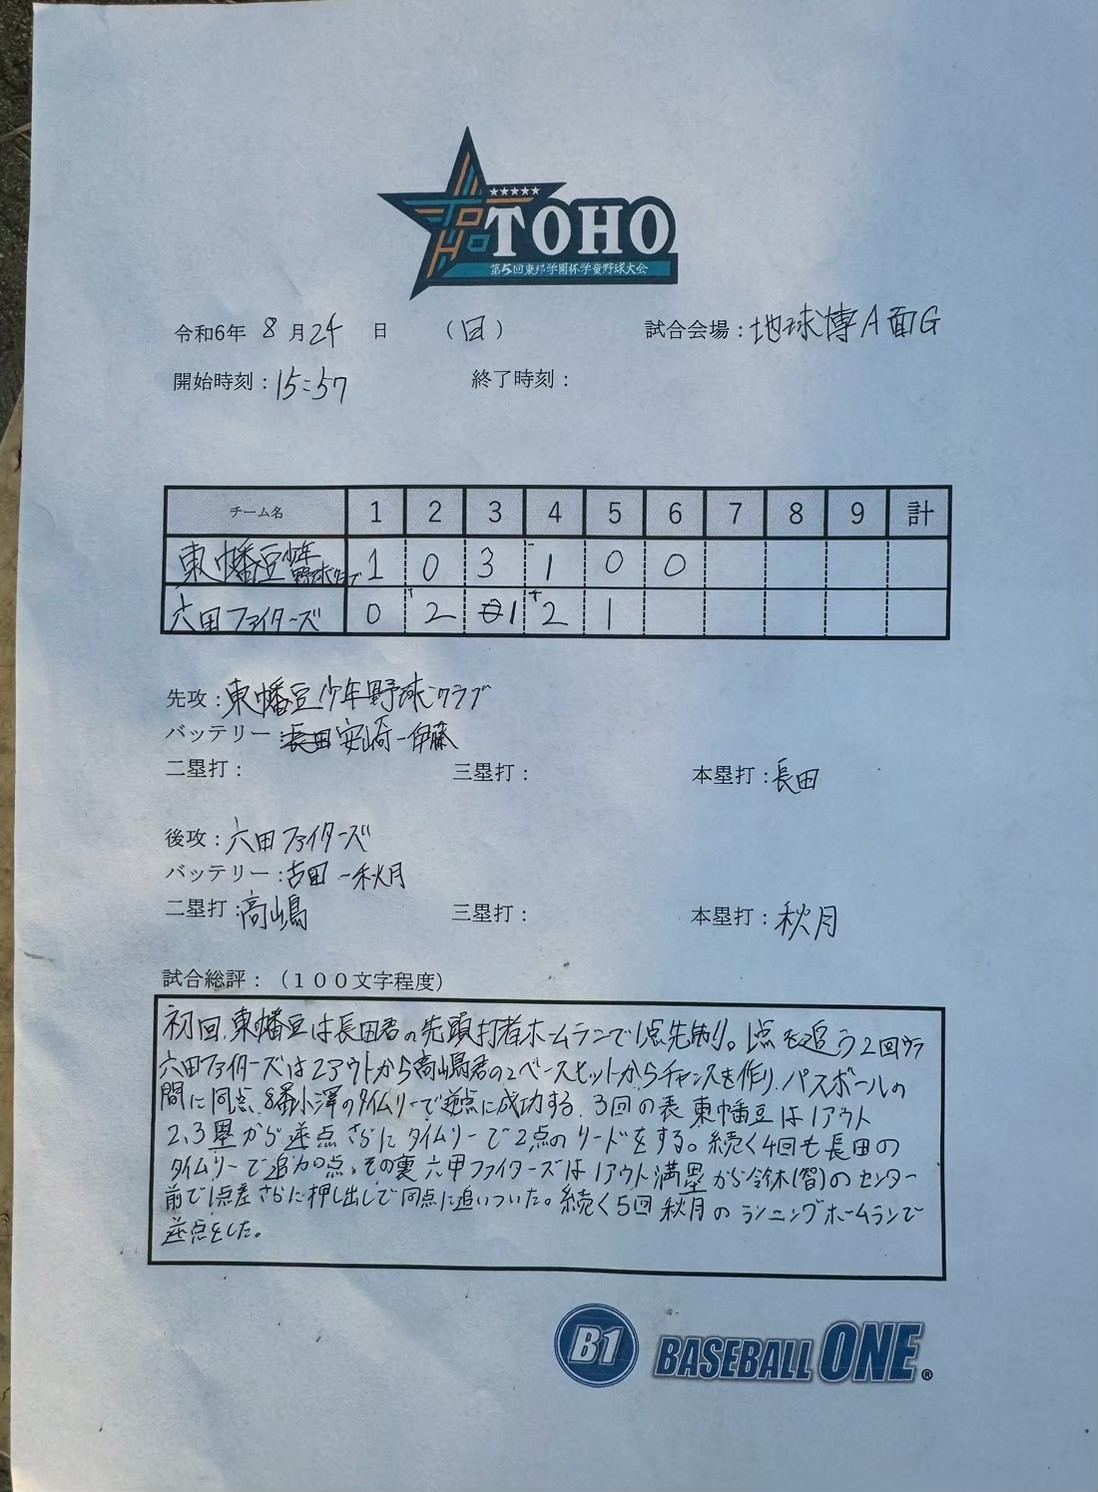 ★★★★★
TOHO
TOHO
第5回東邦学園杯学童野球大会
令和6年 8月24日 (日) 試合会場：地球博A面G
開始時刻：15:57 終了時刻：
チーム名 1 2 3 4 5 6 7 8 9 計
東幡豆少年野球クラブ 1 0 3 1 0 0
六田ファイターズ 0 2 1 2 1
先攻：東幡豆少年野球クラブ
バッテリー：長田 安崎-伊藤
二塁打： 三塁打： 本塁打：長田
後攻：六田ファイターズ
バッテリー：古田-秋月
二塁打：高嶋 三塁打： 本塁打：秋月
試合総評：（100文字程度）
初回、東幡豆は長田君の先頭打者ホームランで1点先制。1点を追う2回ウラ
六田ファイターズは2アウトから高嶋君の2ベースヒットからチャンスを作り、パスボールの
間に同点、8番小澤のタイムリーで逆点に成功する。3回の表 東幡豆は1アウト
2,3塁から逆点さらにタイムリーで2点のリードをする。続く4回も長田の
タイムリーで追加点。その裏 六甲ファイターズは1アウト満塁から鈴木(智)のセンター
前で1点差さらに押し出しで同点に追いついた。続く5回 秋月のランニングホームランで
逆点をした。
B1 BASEBALL ONE®